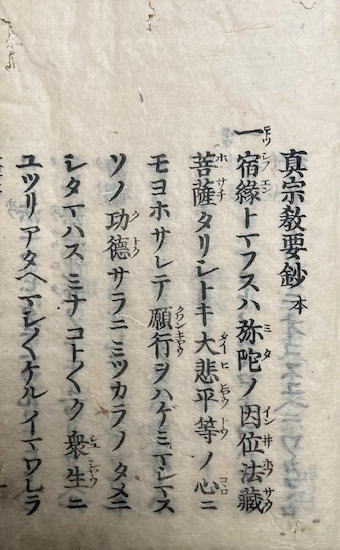 真宗教要鈔 本
一宿縁トマフスハ弥陀ノ因位法蔵
菩薩タリシトキ大悲平等ノ心ニ
モヨホサレテ願行ヲハゲミマシマス
ソノ功徳サラニミツカラノタメニ
シタマハズミナコト〱ク衆生ニ
ユツリアタヘマシ〱ケルイマワレラ